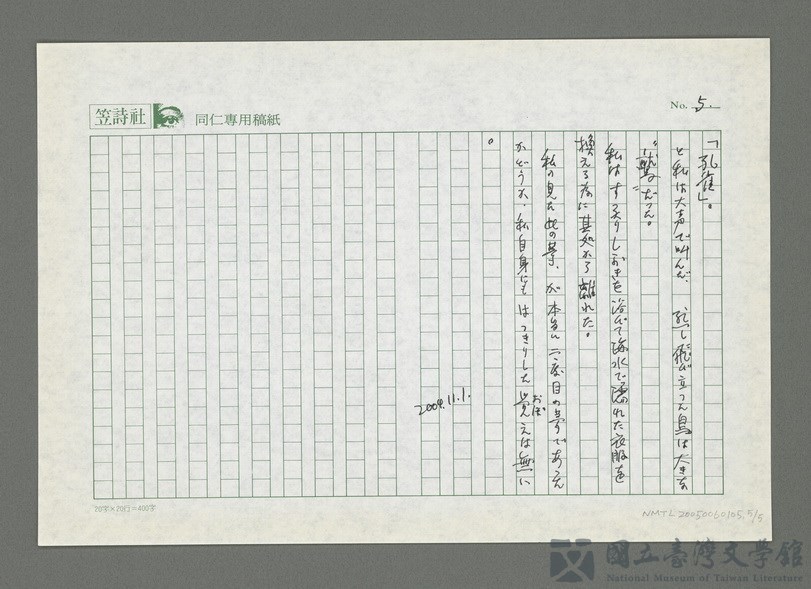 笠詩社
同仁專用稿紙
No. 5.
「孔雀」。
と私は大声で叫んだ. 然し飛び立った鳥は大きな
"鷲"だった。
私はすっかりしぶきを浴びて海水で濡れた衣服を
換える為に其処から離れた。
私の見た此の夢、が本当に二度目の夢であった
かどうか、私自身にもはっきりした覚えは無い
おぼ
。
2004.11.1.
20字×20行=400字
NMTL20050060105.5/5
國立臺灣文學館
National Museum of Taiwan Literature